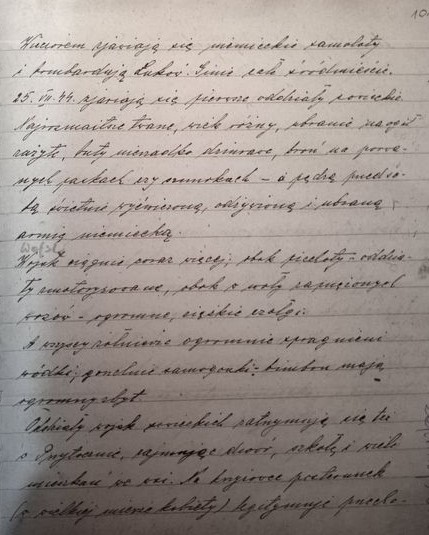 10
Wieczorem zjawiają się niemieckie samoloty
i bombardują Łuków. Ginie całe śródmieście.
25. VII. 44. zjawiają się pierwsze oddziały sowieckie.
Najrozmaitsze twarze, wiek różny, ubranie na ogół
zużyte, buty nierzadko dziurawe, broń na porwa-
nych paskach czy sznurkach - a pędzą przed so-
bą świetnie wyćwiczoną, odżywioną i ubraną
armię niemiecką.
Wojsk ciągnie coraz więcej, obok piechoty - oddzia-
ły zmotoryzowane, obok w woły zaprzężonych
wozów - ogromne, ciężkie czołgi.
A wszyscy żołnierze ogromnie spragnieni
wódki, goniciele samogonki - bimbru mają
ogromny zbyt.
Oddziały wojsk sowieckich zatrzymują się też
w zajmując dwór, szkołę i wiele
mieszkań we wsi. Na krzyżówce posterunek
(w wielkiej mierze kobiety) legitymuje przecho-